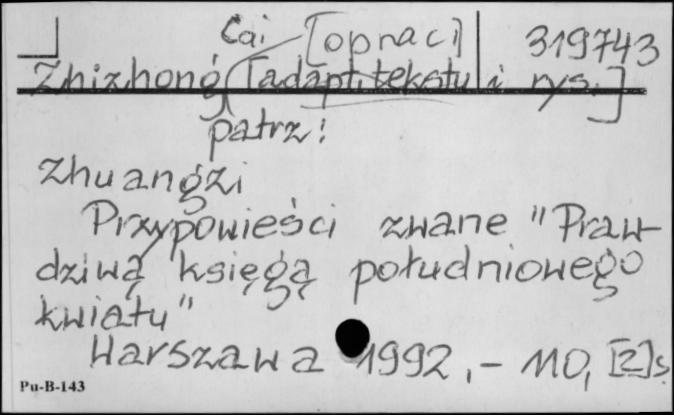 Cai [opraci] 319743
Zhizhong [adapt. tekstu i rys.]
patrz:
Zhuangzi
Przypowieści zwane "Praw-
dziwą księgą południowego
kwiatu"
Warszawa 1992, - 110, [2]s.
Pu-B-143